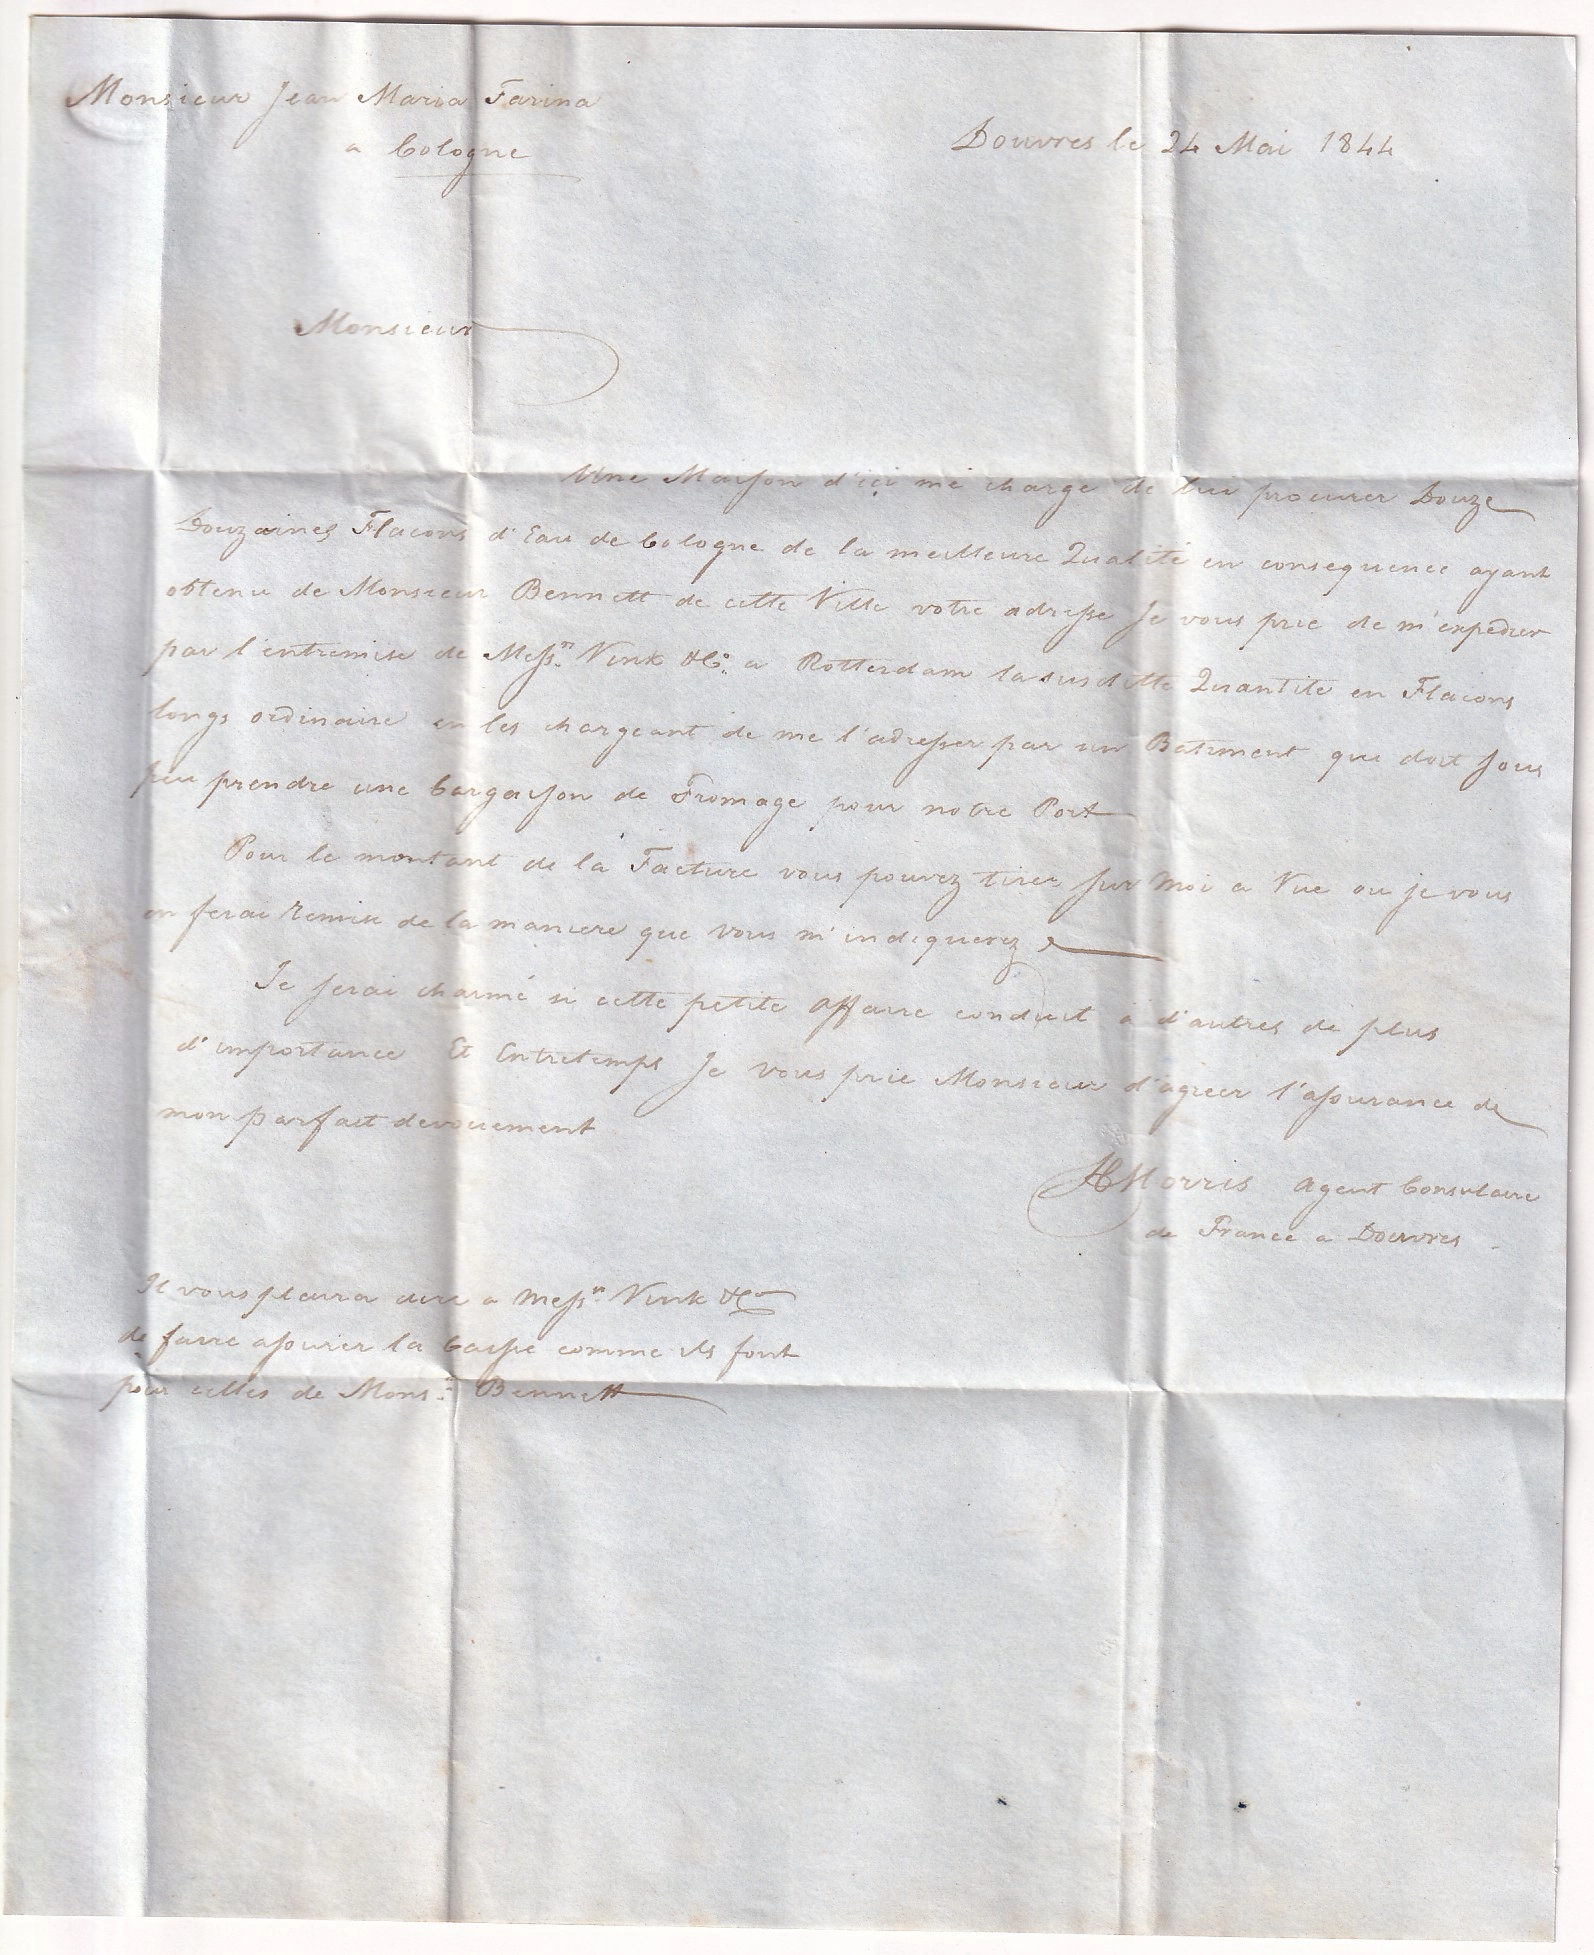 Monsieur Jean Maria Farina
a Cologne
Douvres le 24 Mai 1844
Monsieur
Une Maison d'ici me charge de lui procurer Douze
Douzaines Flacons d'Eau de Cologne de la meilleure Qualité en consequence ayant
obtenu de Monsieur Bennett de cette Ville votre adresse Je vous prie de m'expedier
par l'entremise de Messrs Vink & Co. a Rotterdam la susditte Quantite en Flacons
longs ordinaire en les chargeant de me l'adresser par un Batiment qui doit sous
peu prendre une Cargaison de Fromage pour notre Port
Pour le montant de la Facture vous pouvez tirer sur moi a Vue ou je vous
en ferai remise de la maniere que vous m'indiquerez
Je serai charmé si cette petite affaire conduit a d'autres de plus
d'importance Et Entretemps Je vous prie Monsieur d'agreer l'assurance de
mon parfait devouement
H Morris agent Consulaire
de France a Douvres
Il vous plaira dire a Messrs Vink & Co
de faire assurer la Caisse comme ils font
pour celles de Monsr Bennett